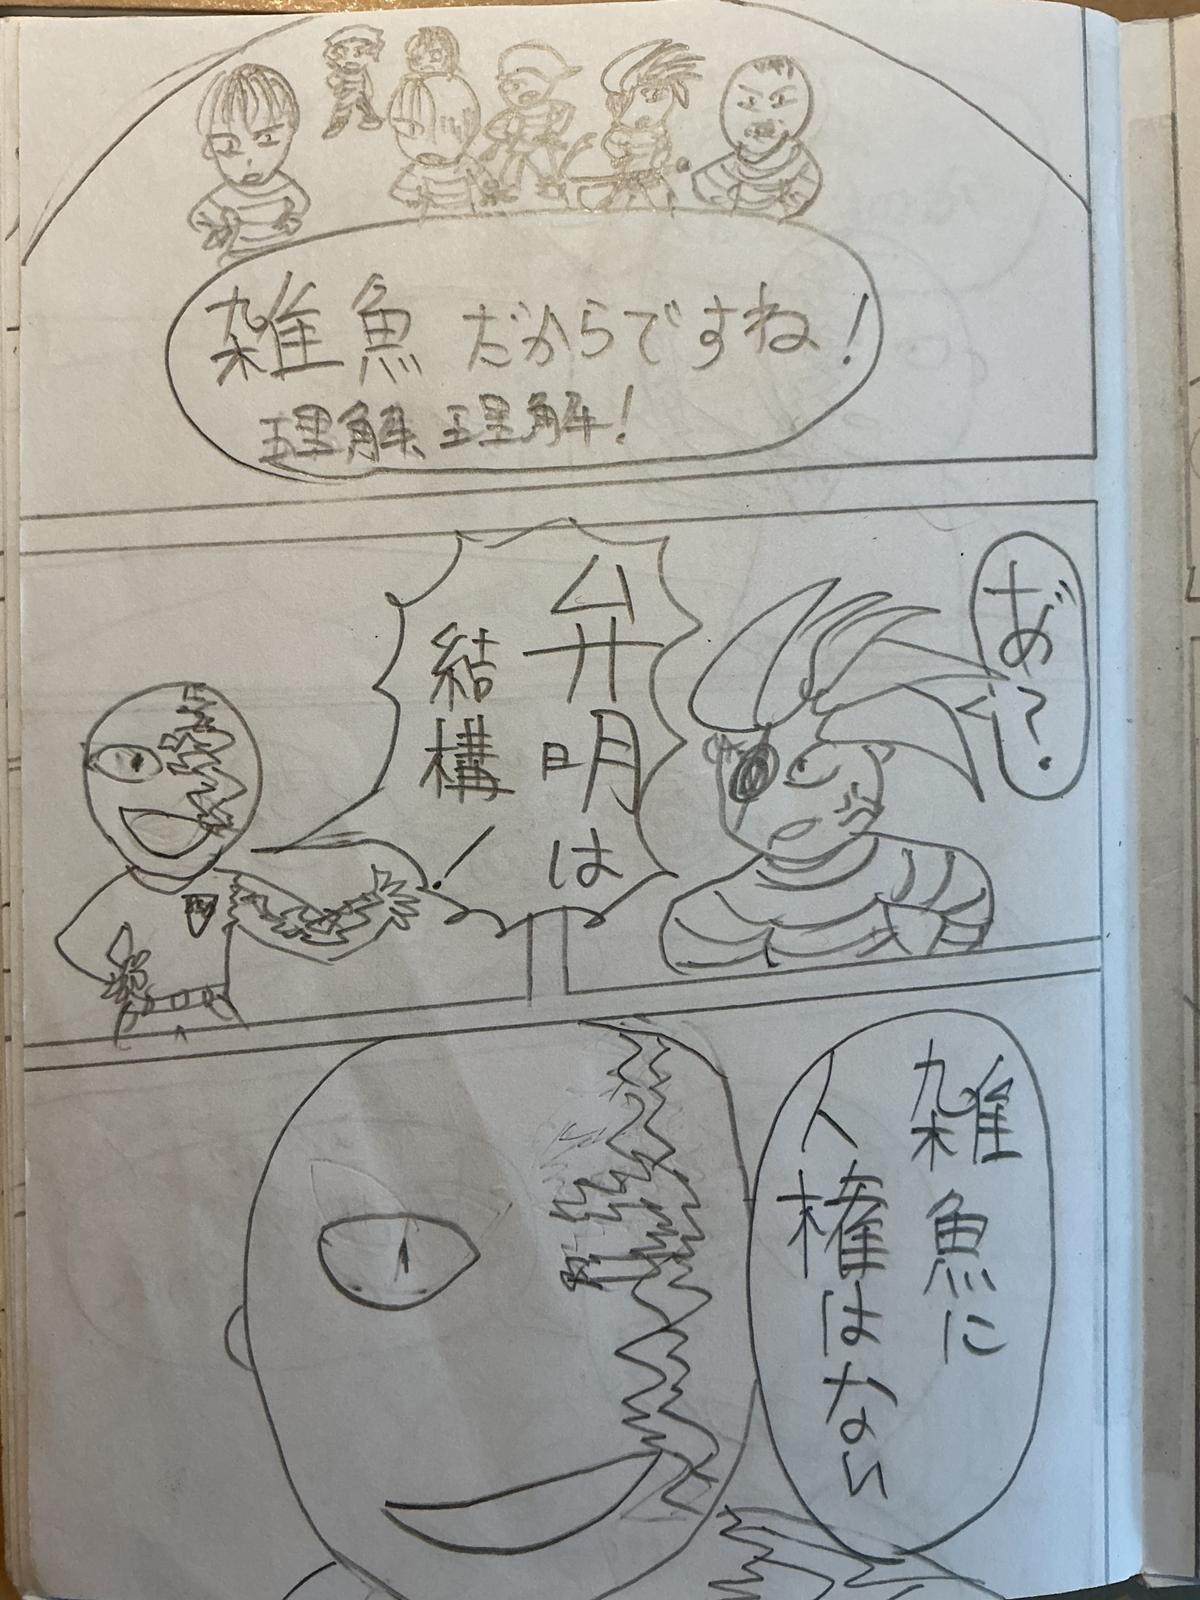 雑魚だからですね！
理解理解！
あ゛？
弁明は
結構！
雑魚に
人権はない